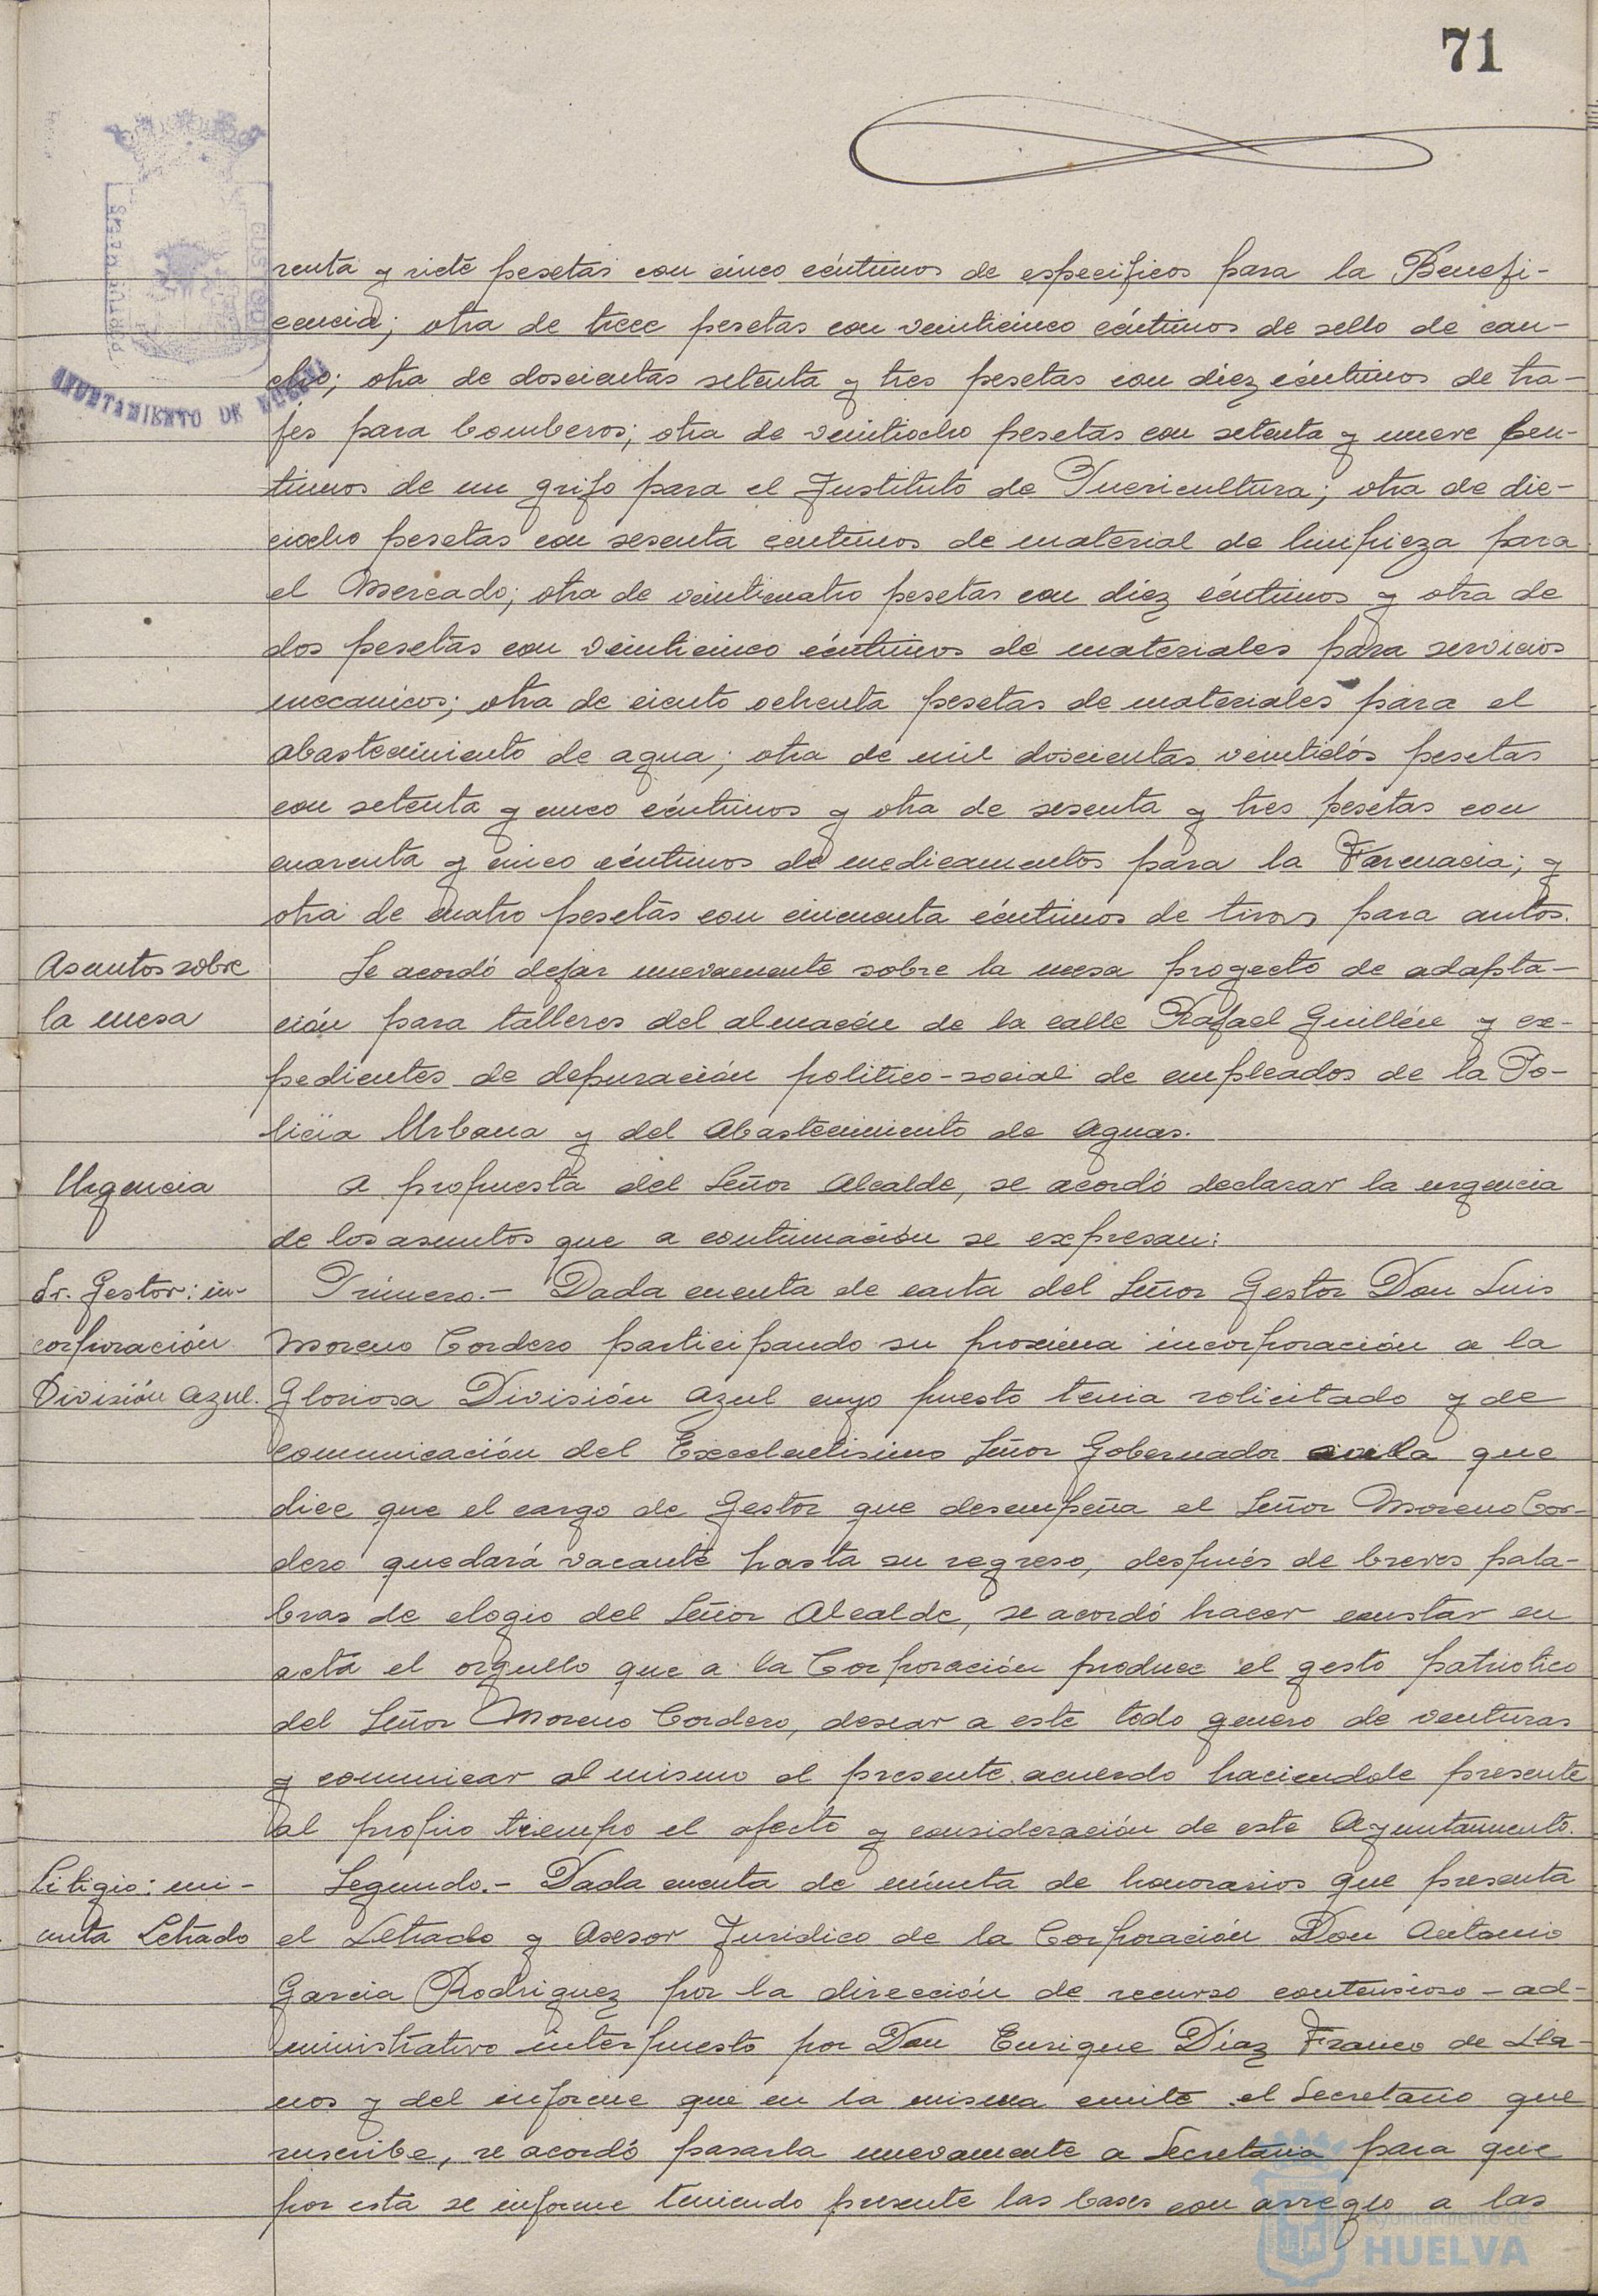 71
PORTUS MARIS ET TERRAE CUSTODIA
AYUNTAMIENTO DE HUELVA
renta y siete pesetas con cinco céntimos de especificos para la Benefi-
cencia; otra de trece pesetas con veinticinco céntimos de sello de cau-
cho; otra de doscientas setenta y tres pesetas con diez céntimos de tra-
jes para bomberos; otra de veintiocho pesetas con setenta y nueve cen-
timos de un grifo para el Instituto de Puericultura; otra de die-
ciocho pesetas con sesenta centimos de material de limpieza para
el Mercado; otra de veinticuatro pesetas con diez céntimos y otra de
dos pesetas con veinticinco céntimos de materiales para servicios
mecanicos; otra de ciento ochenta pesetas de materiales para el
abastecimiento de agua; otra de mil doscientas veintidós pesetas
con setenta y cinco céntimos y otra de sesenta y tres pesetas con
cuarenta y cinco céntimos de medicamentos para la Farmacia; y
otra de cuatro pesetas con cincuenta céntimos de tiros para autos.
Asuntos sobre
la mesa
Se acordó dejar nuevamente sobre la mesa proyecto de adapta-
ción para talleres del almacén de la calle Rafael Guillén y ex-
pedientes de depuración politico-social de empleados de la Po-
licía Urbana y del Abastecimiento de Aguas.
Urgencia
A propuesta del Señor Alcalde, se acordó declarar la urgencia
de los asuntos que a continuación se expresan:
Sr. Gestor: in-
corporación
División Azul.
Primero.- Dada cuenta de carta del Señor Gestor Don Luis
Moreno Cordero participando su proxima incorporación a la
Gloriosa División Azul cuyo puesto tenia solicitado y de
comunicación del Excelentisimo Señor Gobernador en la que
dice que el cargo de Gestor que desempeña el Señor Moreno Cor-
dero quedará vacante hasta su regreso, después de breves pala-
bras de elogio del Señor Alcalde, se acordó hacer constar en
acta el orgullo que a la Corporación produce el gesto patriotico
del Señor Moreno Cordero, desear a este todo genero de venturas
y comunicar al mismo el presente acuerdo haciendole presente
al propio tiempo el afecto y consideración de este Ayuntamiento.
Litigio: mi-
nuta Letrado
Segundo.- Dada cuenta de minuta de honorarios que presenta
el Letrado y Asesor Juridico de la Corporación Don Antonio
Garcia Rodriguez por la dirección de recurso contensioso-ad-
ministrativo interpuesto por Don Enrique Díaz Franco de Lla-
nos y del informe que en la misma emite el Secretario que
suscribe, se acordó pasarla nuevamente a Secretaria para que
por esta se informe teniendo presente las bases con arreglo a las
Ayuntamiento de
HUELVA